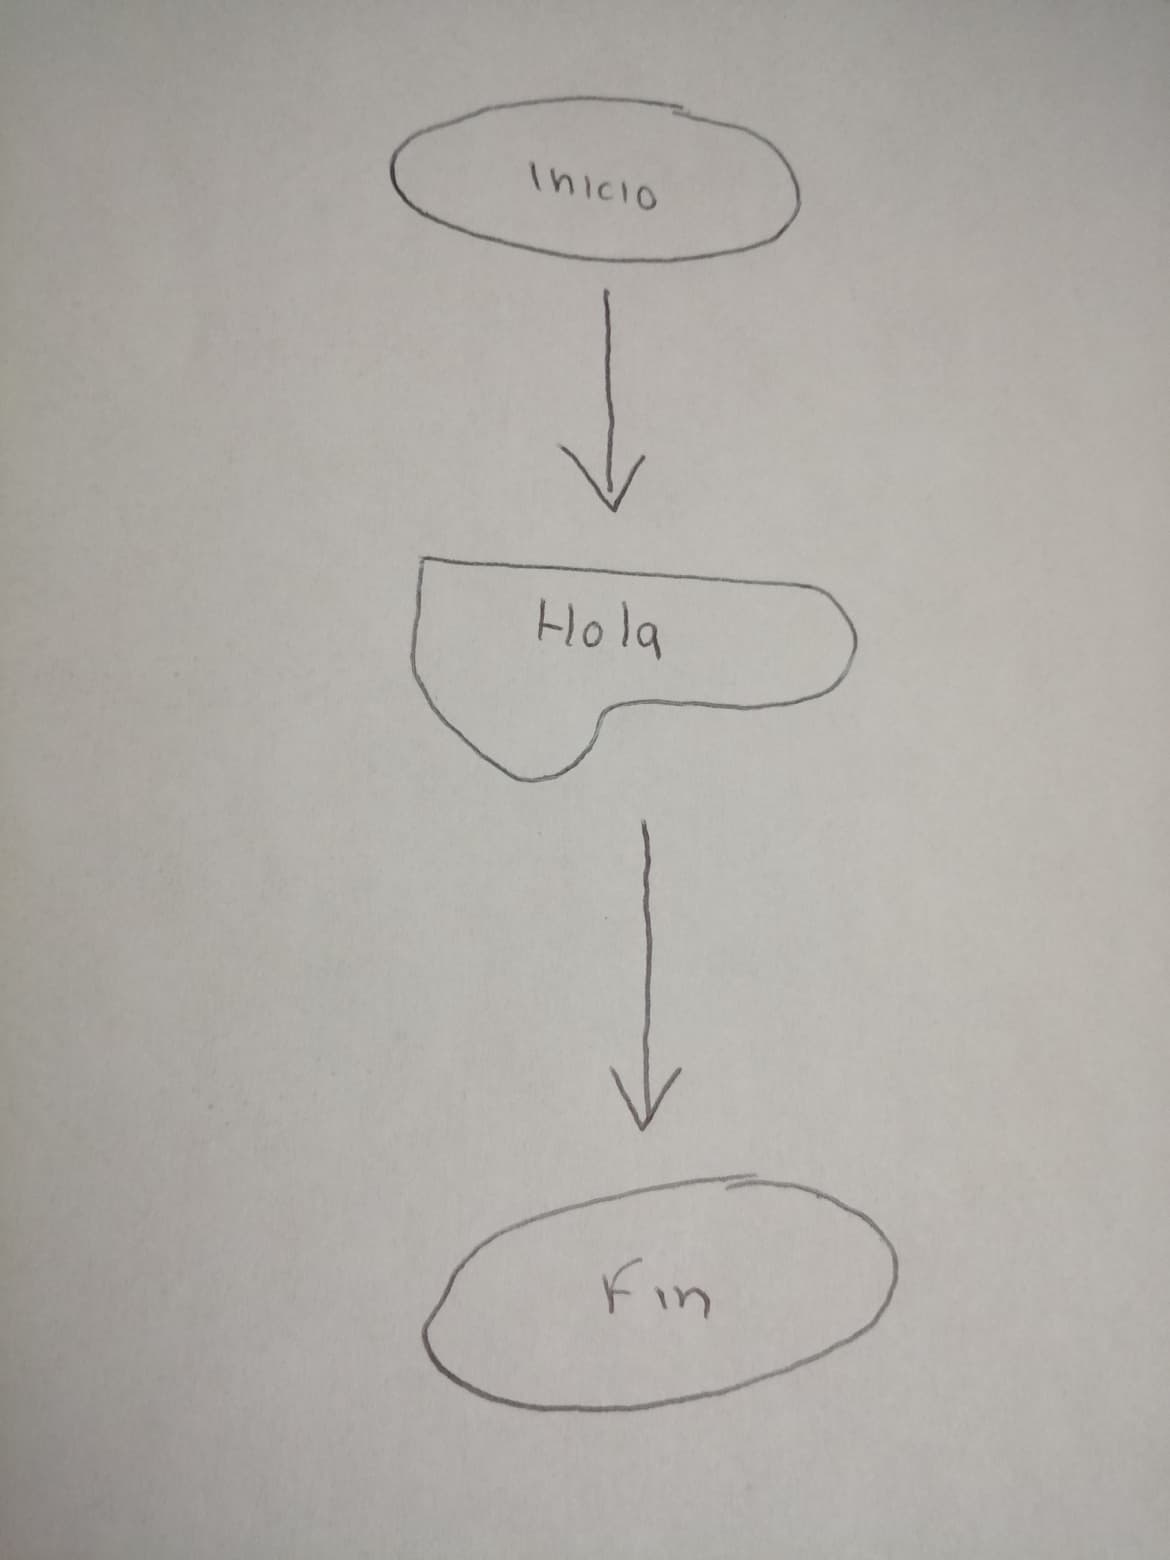 Inicio
Hola
Fin